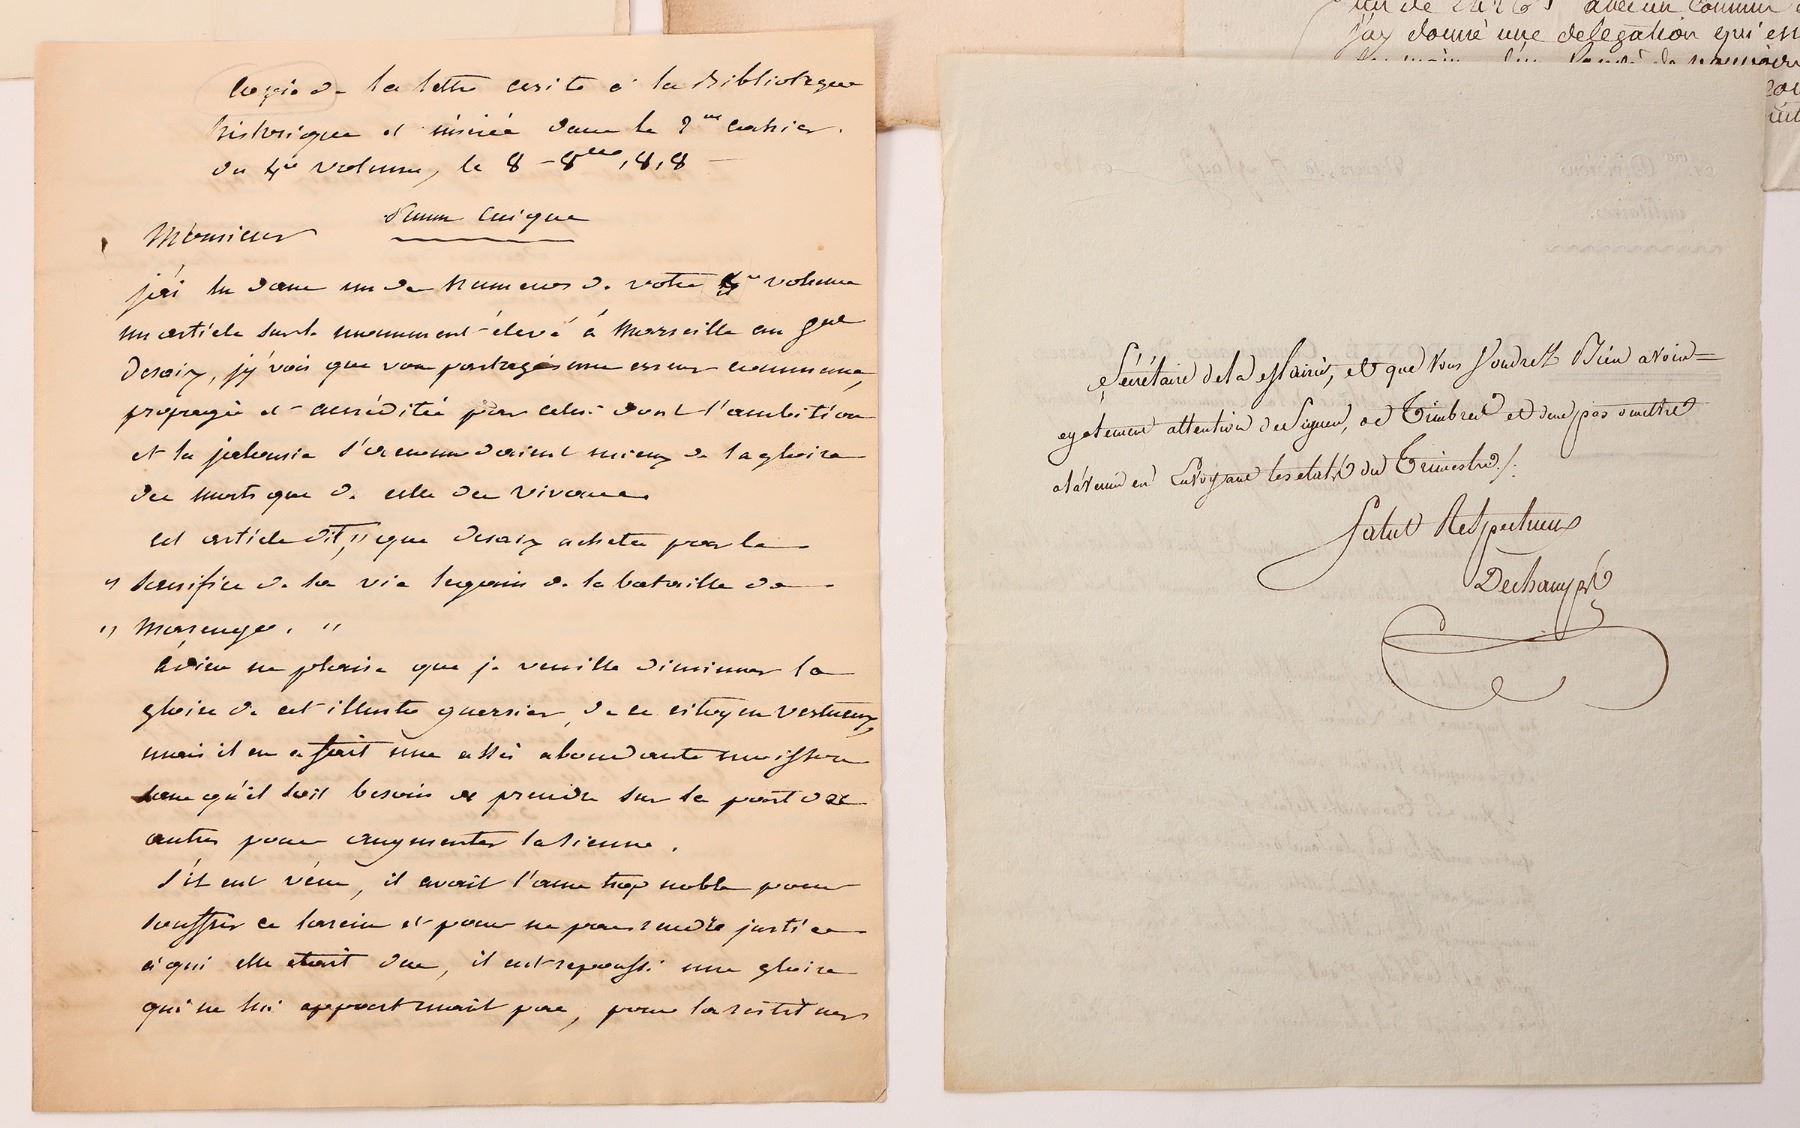 Copie de la lettre écrite à la Biblioteque
historique et inserée dans le 2me cahier.
du 4me volume, le 8 - 8bre 1818 -
Suum Cuique
Monsieur
j'ai lu dans un de numeros de votre 4me volume
un article sur le monument élevé à Marseille au gal
Desaix, j'y vois que vous partagés une erreur commune,
propagée et accréditée par celui dont l'ambition
et la jalousie s'accommodaient mieux de la gloire
des morts que de celle des vivans.
cet article dit, "que Desaix acheta par le
" sacrifice de sa vie le gain de la bataille de
" Marengo. "
à dieu ne plaise que je veuille diminuer la
gloire de cet illustre guerrier, de ce citoyen vertueux,
mais il en a fait une assés abondante moisson
sans qu'il soit besoin de prendre sur la part des
autres pour augmenter la sienne.
S'il eut vécu, il avait l'ame trop noble pour
souffrir ce larcin et pour ne pas rendre justice
à qui elle etait due, il eut repoussé une gloire
qui ne lui appartenait pas, pour la restituer
j'ay donné une delegation qui est
Secrétaire de la Mairie, et que vous voudrez Bien avoir
egalement attention de Signer, et Timbrer et de ne pas omettre
à l'avenir en Envoyant les etats du Trimestre ./.
Salut Respectueux
Dechamps